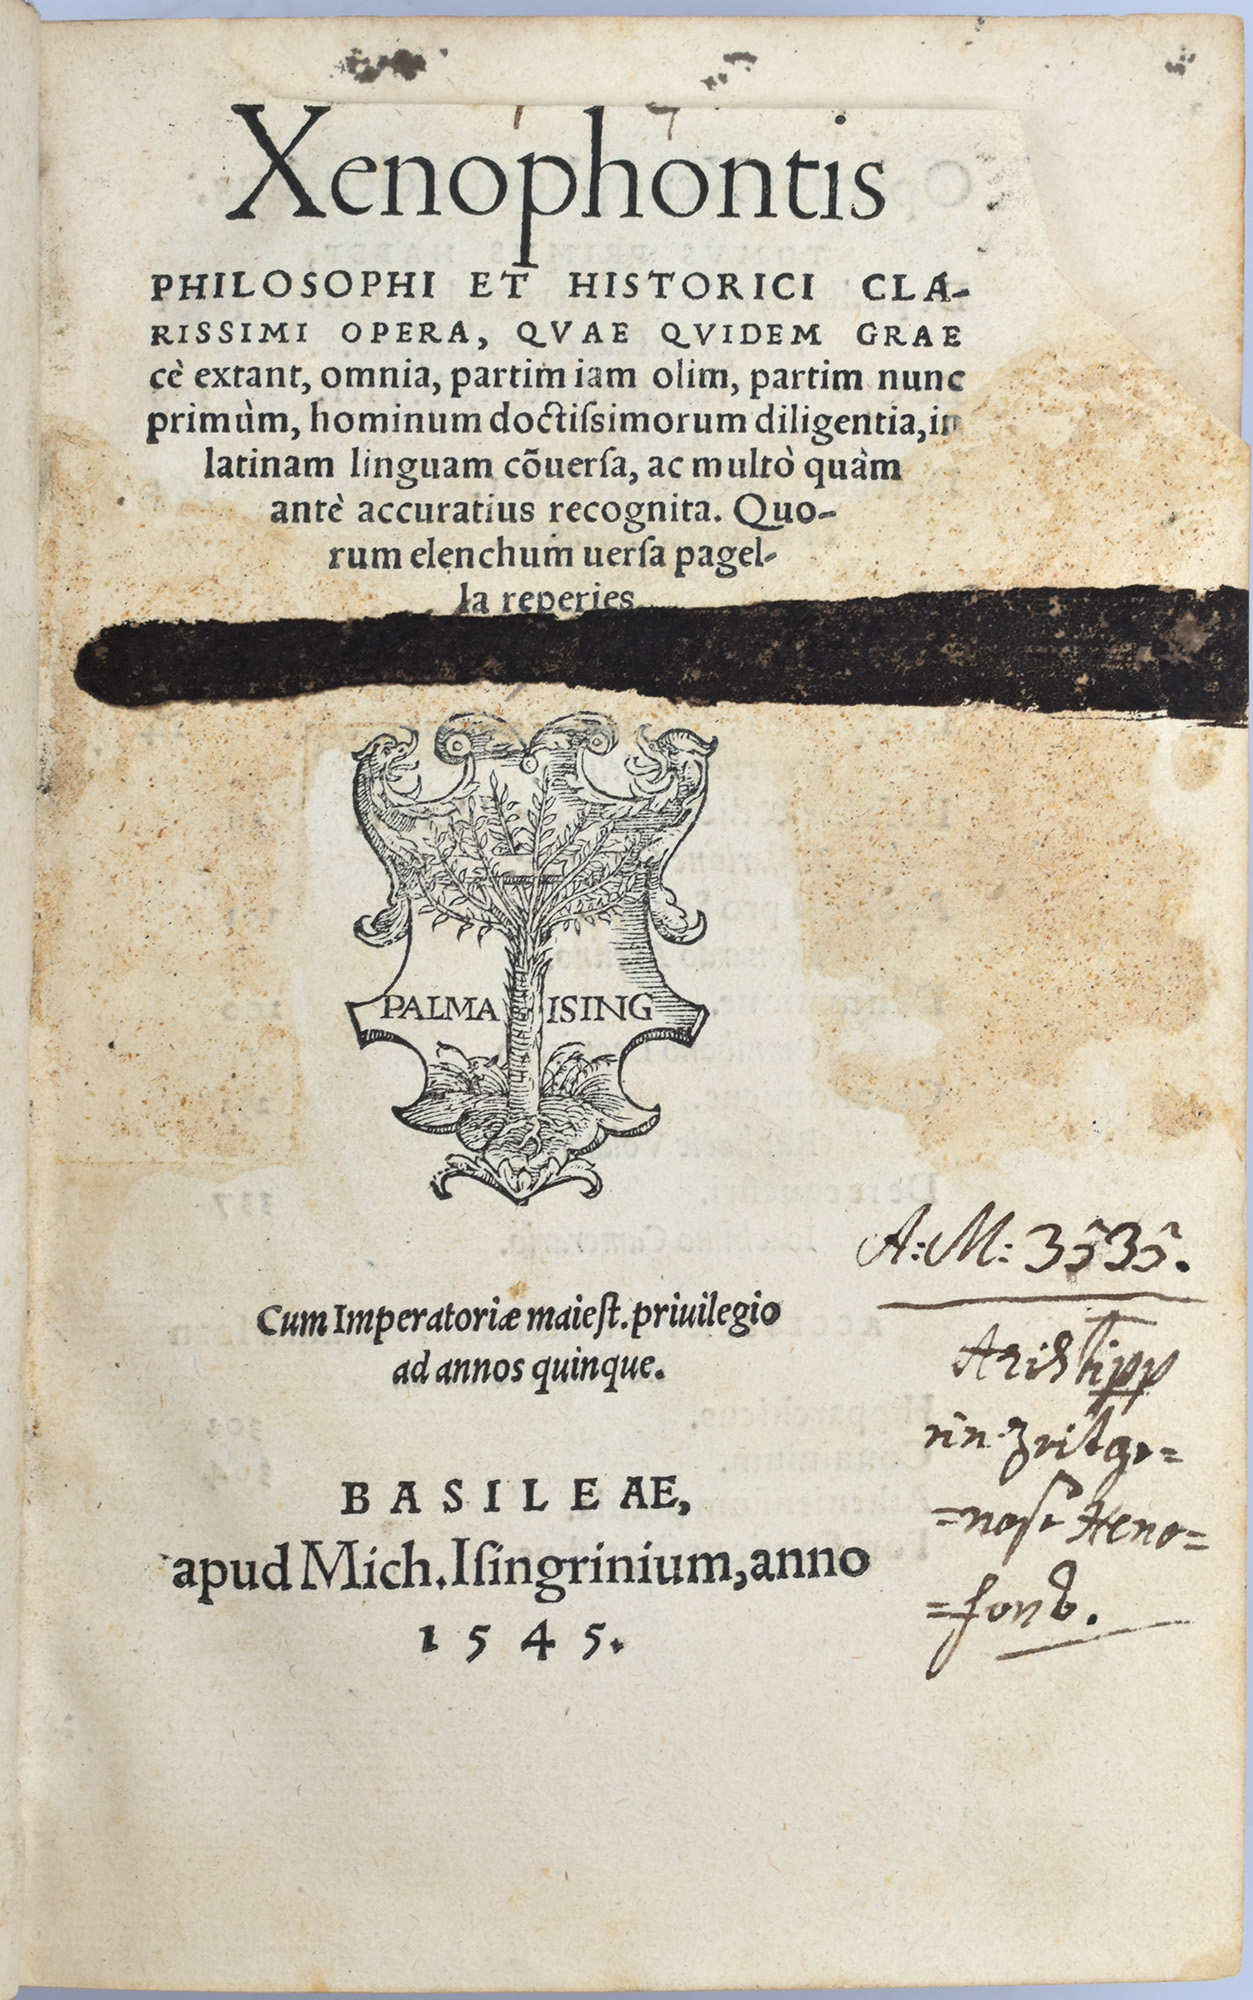 Xenophontis
PHILOSOPHI ET HISTORICI CLA-
RISSIMI OPERA, QVAE QVIDEM GRAE
cè extant, omnia, partim iam olim, partim nunc
primùm, hominum doctiſsimorum diligentia, in
latinam linguam cõuerſa, ac multò quàm
antè accuratius recognita. Quo-
rum elenchum uerſa pagel-
la reperies
PALMA ISING
A: M: 3535.
Cum Imperatoriæ maieſt. priuilegio
ad annos quinque.
Aristipp
ein Zeitge=
=noſſe Xeno=
=fons.
BASILEAE,
apud Mich. Iſingrinium, anno
1545.